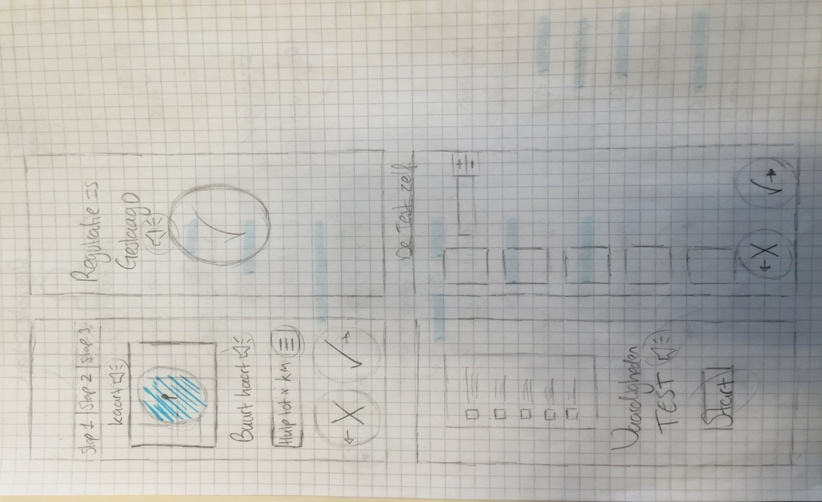 Stap 1 | Stap 2 | Stap 3
kaart
Buurt kaart
Hulp tot x km
← X ✓ →
Registratie is
Geslaagd
✓
Vaardigheden
TEST
Start
De Test zelf
+
-
← X ✓ →